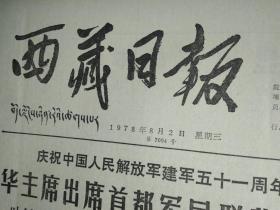 西藏日报
བོད་ལྗོངས་ཉིན་རེའི་ཚགས་པར
1978年8月2日 星期三
庆祝中国人民解放军建军五十一周年
华主席出席首都军民联